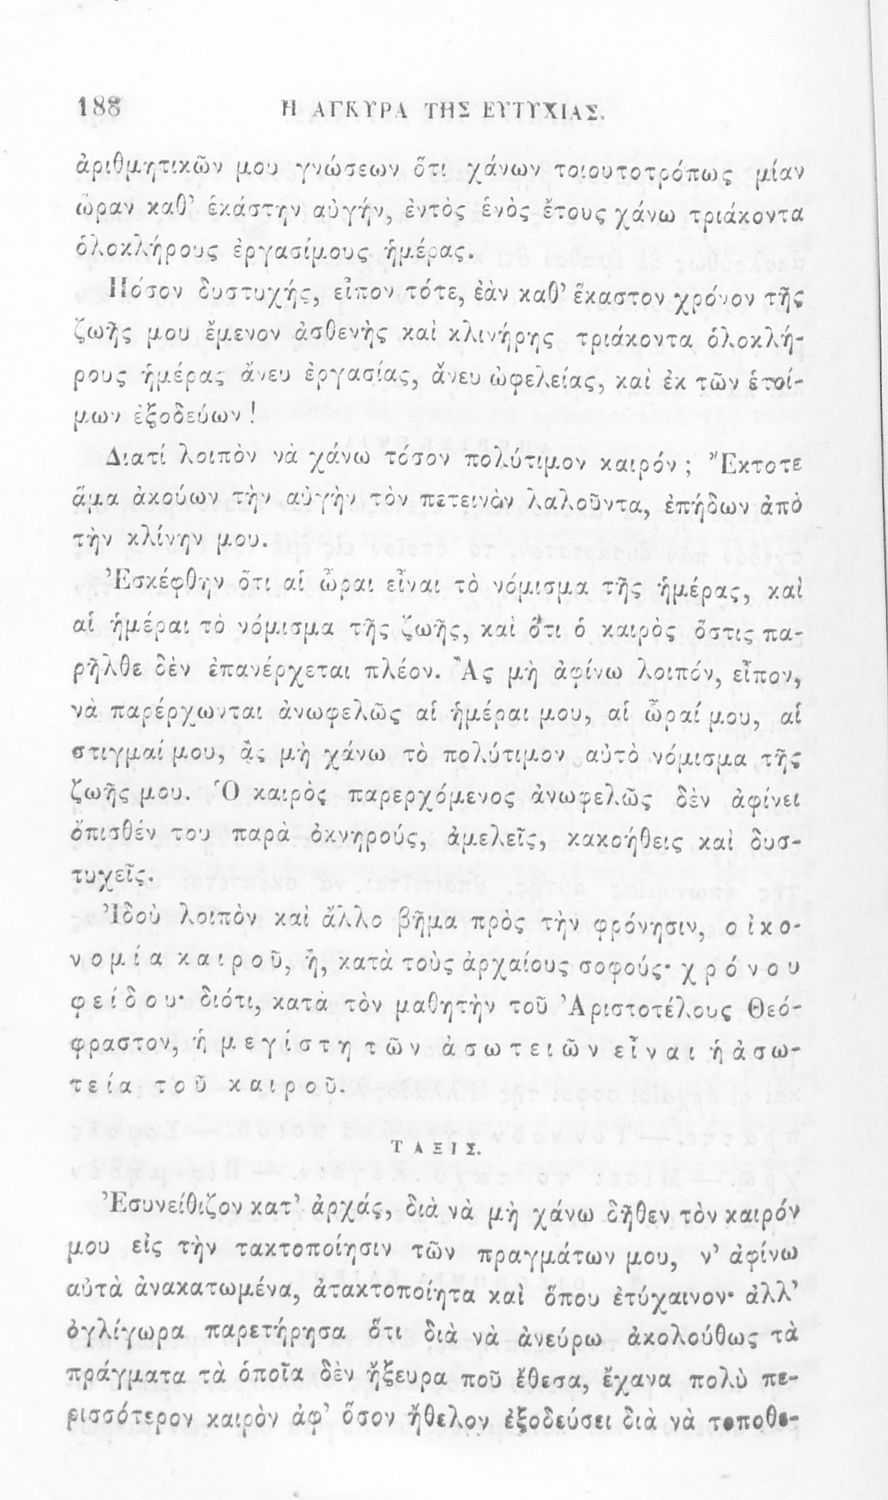 188 Η ΑΓΚΥΡΑ ΤΗΣ ΕΥΤΥΧΙΑΣ.
ἀριθμητικῶν μου γνώσεων ὅτι χάνων τοιουτοτρόπως μίαν
ὥραν καθ’ ἑκάστην αὐγήν, ἐντὸς ἑνὸς ἔτους χάνω τριάκοντα
ὁλοκλήρους ἐργασίμους ἡμέρας.
Πόσον δυστυχής, εἶπον τότε, ἐὰν καθ’ ἕκαστον χρόνον τῆς
ζωῆς μου ἔμενον ἀσθενὴς καὶ κλινήρης τριάκοντα ὁλοκλή-
ρους ἡμέρας ἄνευ ἐργασίας, ἄνευ ὠφελείας, καὶ ἐκ τῶν ἑτοί-
μων ἐξοδεύων!
Διατί λοιπὸν νὰ χάνω τόσον πολύτιμον καιρόν; Ἔκτοτε
ἅμα ἀκούων τὴν αὐγὴν τὸν πετεινὸν λαλοῦντα, ἐπήδων ἀπὸ
τὴν κλίνην μου.
Ἐσκέφθην ὅτι αἱ ὧραι εἶναι τὸ νόμισμα τῆς ἡμέρας, καὶ
αἱ ἡμέραι τὸ νόμισμα τῆς ζωῆς, καὶ ὅτι ὁ καιρὸς ὅστις πα-
ρῆλθε δὲν ἐπανέρχεται πλέον. Ἂς μὴ ἀφίνω λοιπόν, εἶπον,
νὰ παρέρχωνται ἀνωφελῶς αἱ ἡμέραι μου, αἱ ὧραί μου, αἱ
στιγμαί μου, ἂς μὴ χάνω τὸ πολύτιμον αὐτὸ νόμισμα τῆς
ζωῆς μου. Ὁ καιρὸς παρερχόμενος ἀνωφελῶς δὲν ἀφίνει
ὄπισθέν του παρὰ ὀκνηρούς, ἀμελεῖς, κακοήθεις καὶ δυσ-
τυχεῖς.
Ἰδοὺ λοιπὸν καὶ ἄλλο βῆμα πρὸς τὴν φρόνησιν, οἰκο-
νομία καιροῦ, ἤ, κατὰ τοὺς ἀρχαίους σοφούς· χρόνου
φείδου· διότι, κατὰ τὸν μαθητὴν τοῦ Ἀριστοτέλους Θεό-
φραστον, ἡ μεγίστη τῶν ἀσωτειῶν εἶναι ἡ ἀσω-
τεία τοῦ καιροῦ.
ΤΑΞΙΣ.
Ἐσυνείθιζον κατ’ ἀρχάς, διὰ νὰ μὴ χάνω δῆθεν τὸν καιρόν
μου εἰς τὴν τακτοποίησιν τῶν πραγμάτων μου, ν’ ἀφίνω
αὐτὰ ἀνακατωμένα, ἀτακτοποίητα καὶ ὅπου ἐτύχαινον· ἀλλ’
ὀγλίγωρα παρετήρησα ὅτι διὰ νὰ ἀνεύρω ἀκολούθως τὰ
πράγματα τὰ ὁποῖα δὲν ἤξευρα ποῦ ἔθεσα, ἔχανα πολὺ πε-
ρισσότερον καιρὸν ἀφ’ ὅσον ἤθελον ἐξοδεύσει διὰ νὰ τοποθε-